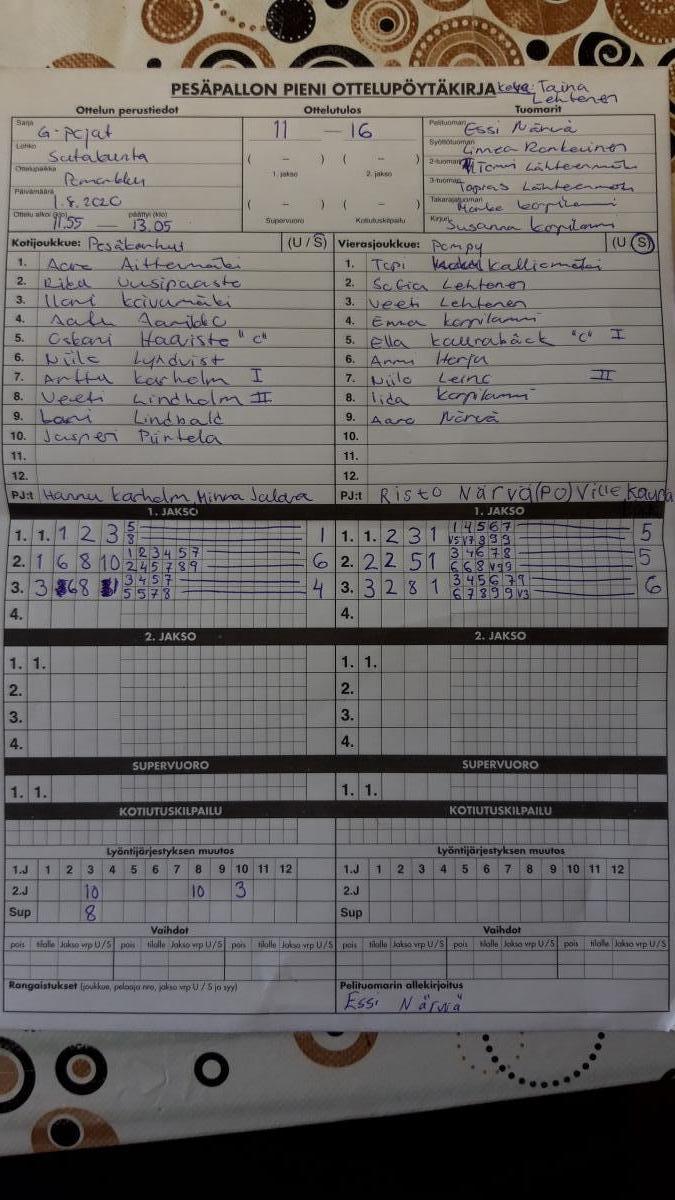 PESÄPALLON PIENI OTTELUPÖYTÄKIRJA Taina
Lehtonen
Ottelun perustiedot Ottelutulos Tuomarit
Sarja G-pojat 11 – 16 Pelituomari Essi Närvä
Lohko Satakunta ( – ) ( – ) Syöttötuomari
Ottelupaikka Pomarkku 1. jakso 2. jakso 2-tuomari Tomi Lähteenmäki
Päivämäärä 1.8.2020 ( – ) ( – ) 3-tuomari Lähteenmäki
Takarajatuomari Korpilammi
Ottelu alkoi (klo) 11.55 — päättyi (klo) 13.05 Supervuoro Kotiutuskilpailu Kirjuri Susanna Korpilammi
Kotijoukkue: Pesäkarhut (U / S) Vierasjoukkue: Pompy (U S)
1. Aaro Aittamäki 1. Topi Kalliomäki
2. Uusipaasto 2. Sofia Lehtonen
3. Ilari Koivumäki 3. Veeti Lehtonen
4. Aatu 4. Emma Korpilammi
5. Oskari Haavisto "C" 5. Ella Kaurabäck "C" I
6. Niilo Lundqvist 6. Anni Harja
7. Arttu Karholm I 7. Niilo Leino II
8. Veeti Lindholm II 8. Iida Korpilammi
9. Lindblad 9. Aaro Närvä
10. Jasperi Piirtola 10.
11. 11.
12. 12.
PJ:t Hannu Karholm, Minna PJ:t Risto Närvä (PO) Ville
1. JAKSO 1. JAKSO
1. 1. 1 2 3 5 1 1. 1. 2 3 1 1 4 5 6 7 5
8 V5 V7 8 9 9
2. 1 6 8 10 1 2 3 4 5 7 6 2. 2 2 5 1 3 4 6 7 8 5
2 4 5 7 8 9 6 6 8 V9 9
3. 3 6 8 3 4 5 7 4 3. 3 2 8 1 3 4 5 6 7 9 6
5 5 7 8 6 7 8 9 9 V3
4. 4.
2. JAKSO 2. JAKSO
1. 1. 1. 1.
2. 2.
3. 3.
4. 4.
SUPERVUORO SUPERVUORO
1. 1. 1. 1.
KOTIUTUSKILPAILU KOTIUTUSKILPAILU
Lyöntijärjestyksen muutos Lyöntijärjestyksen muutos
1.J 1 2 3 4 5 6 7 8 9 10 11 12 1.J 1 2 3 4 5 6 7 8 9 10 11 12
2.J 10 10 3 2.J
Sup 8 Sup
Vaihdot Vaihdot
pois tilalle Jakso vrp U/S pois tilalle Jakso vrp U/S pois tilalle Jakso vrp U/S pois tilalle Jakso vrp U/S pois tilalle Jakso vrp U/S pois tilalle Jakso vrp U/S
Rangaistukset (joukkue, pelaaja nro, jakso vrp U / S ja syy) Pelituomarin allekirjoitus
Essi Närvä